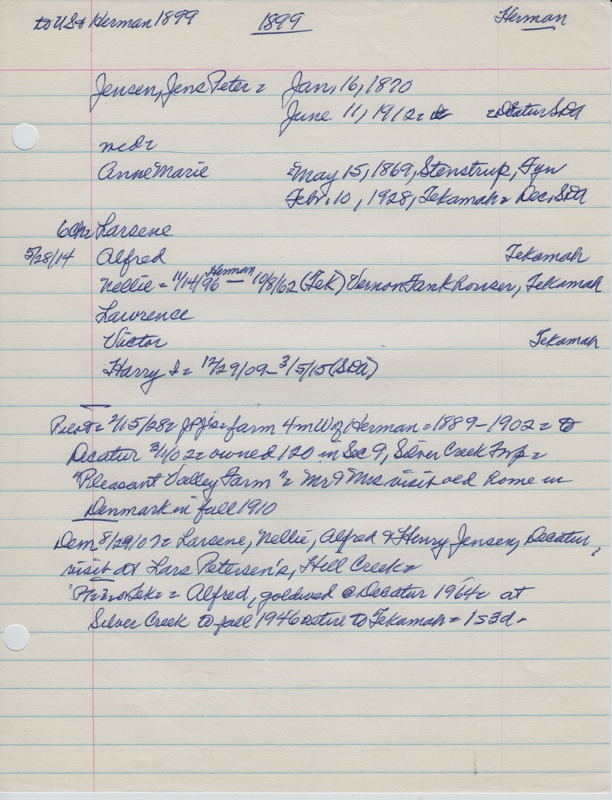 to US & Herman 1899 1899 Herman
Jensen, Jens Peter = Jan, 16, 1870
June 11, 1912 = = Decatur SDA
med =
Anne Marie = May 15, 1869, Stenstrup, Fyn
Febr. 10, 1928, Tekamah = Dec, SDA
6 Ch = Larsene
5/28/14 Alfred Tekamah
Nellie = 11/14/96 Herman — 10/8/62 (Tek) Vernon Fankhouser, Tekamah
Lawrence
Victor Tekamah
Harry I = 12/29/09 - 3/5/15 (SDA)
2/15/28 = = farm 4 mW of Herman = 1889-1902 = to
Decatur 3/1/02 = owned 120 in Sec 9, Silver Creek Twp =
"Pleasant Valley Farm" = Mr & Mrs visit old Home in
Denmark in fall 1910
Dem 8/29/07 = Larsene, Nellie, Alfred & Henry Jensen, Decatur,
visit at Lars Petersen's, Hill Creek =
= Alfred, gold wed @ Decatur 1964 = at
Silver Creek to fall 1946 retire to Tekamah = 1 s 3 d -